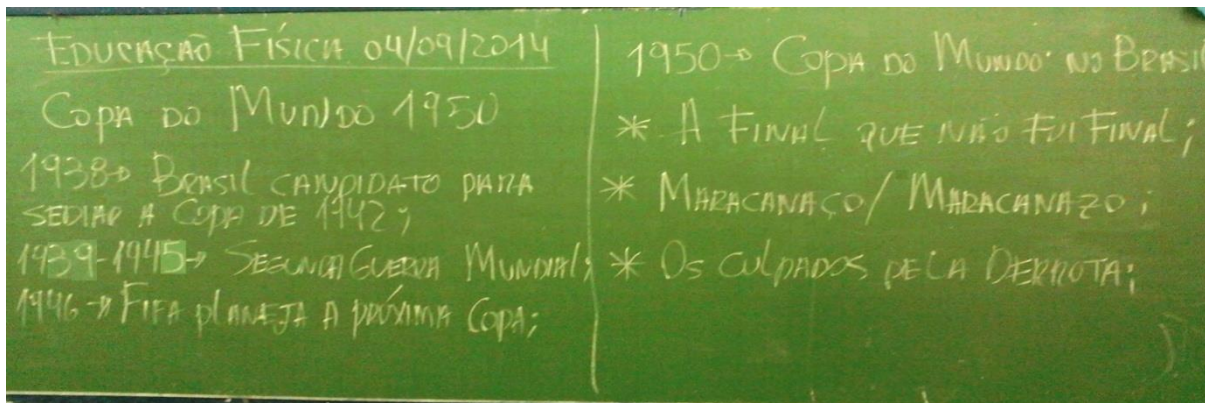 EDUCAÇÃO FÍSICA 04/09/2014
COPA DO MUNDO 1950
1938→ BRASIL CANDIDATO PARA
SEDIAR A COPA DE 1942;
1939-1945→ SEGUNDA GUERRA MUNDIAL;
1946→ FIFA PLANEJA A PRÓXIMA COPA;
1950→ COPA DO MUNDO NO BRASIL
* A FINAL QUE NÃO FOI FINAL;
* MARACANAÇO/MARACANAZO;
* OS CULPADOS PELA DERROTA;